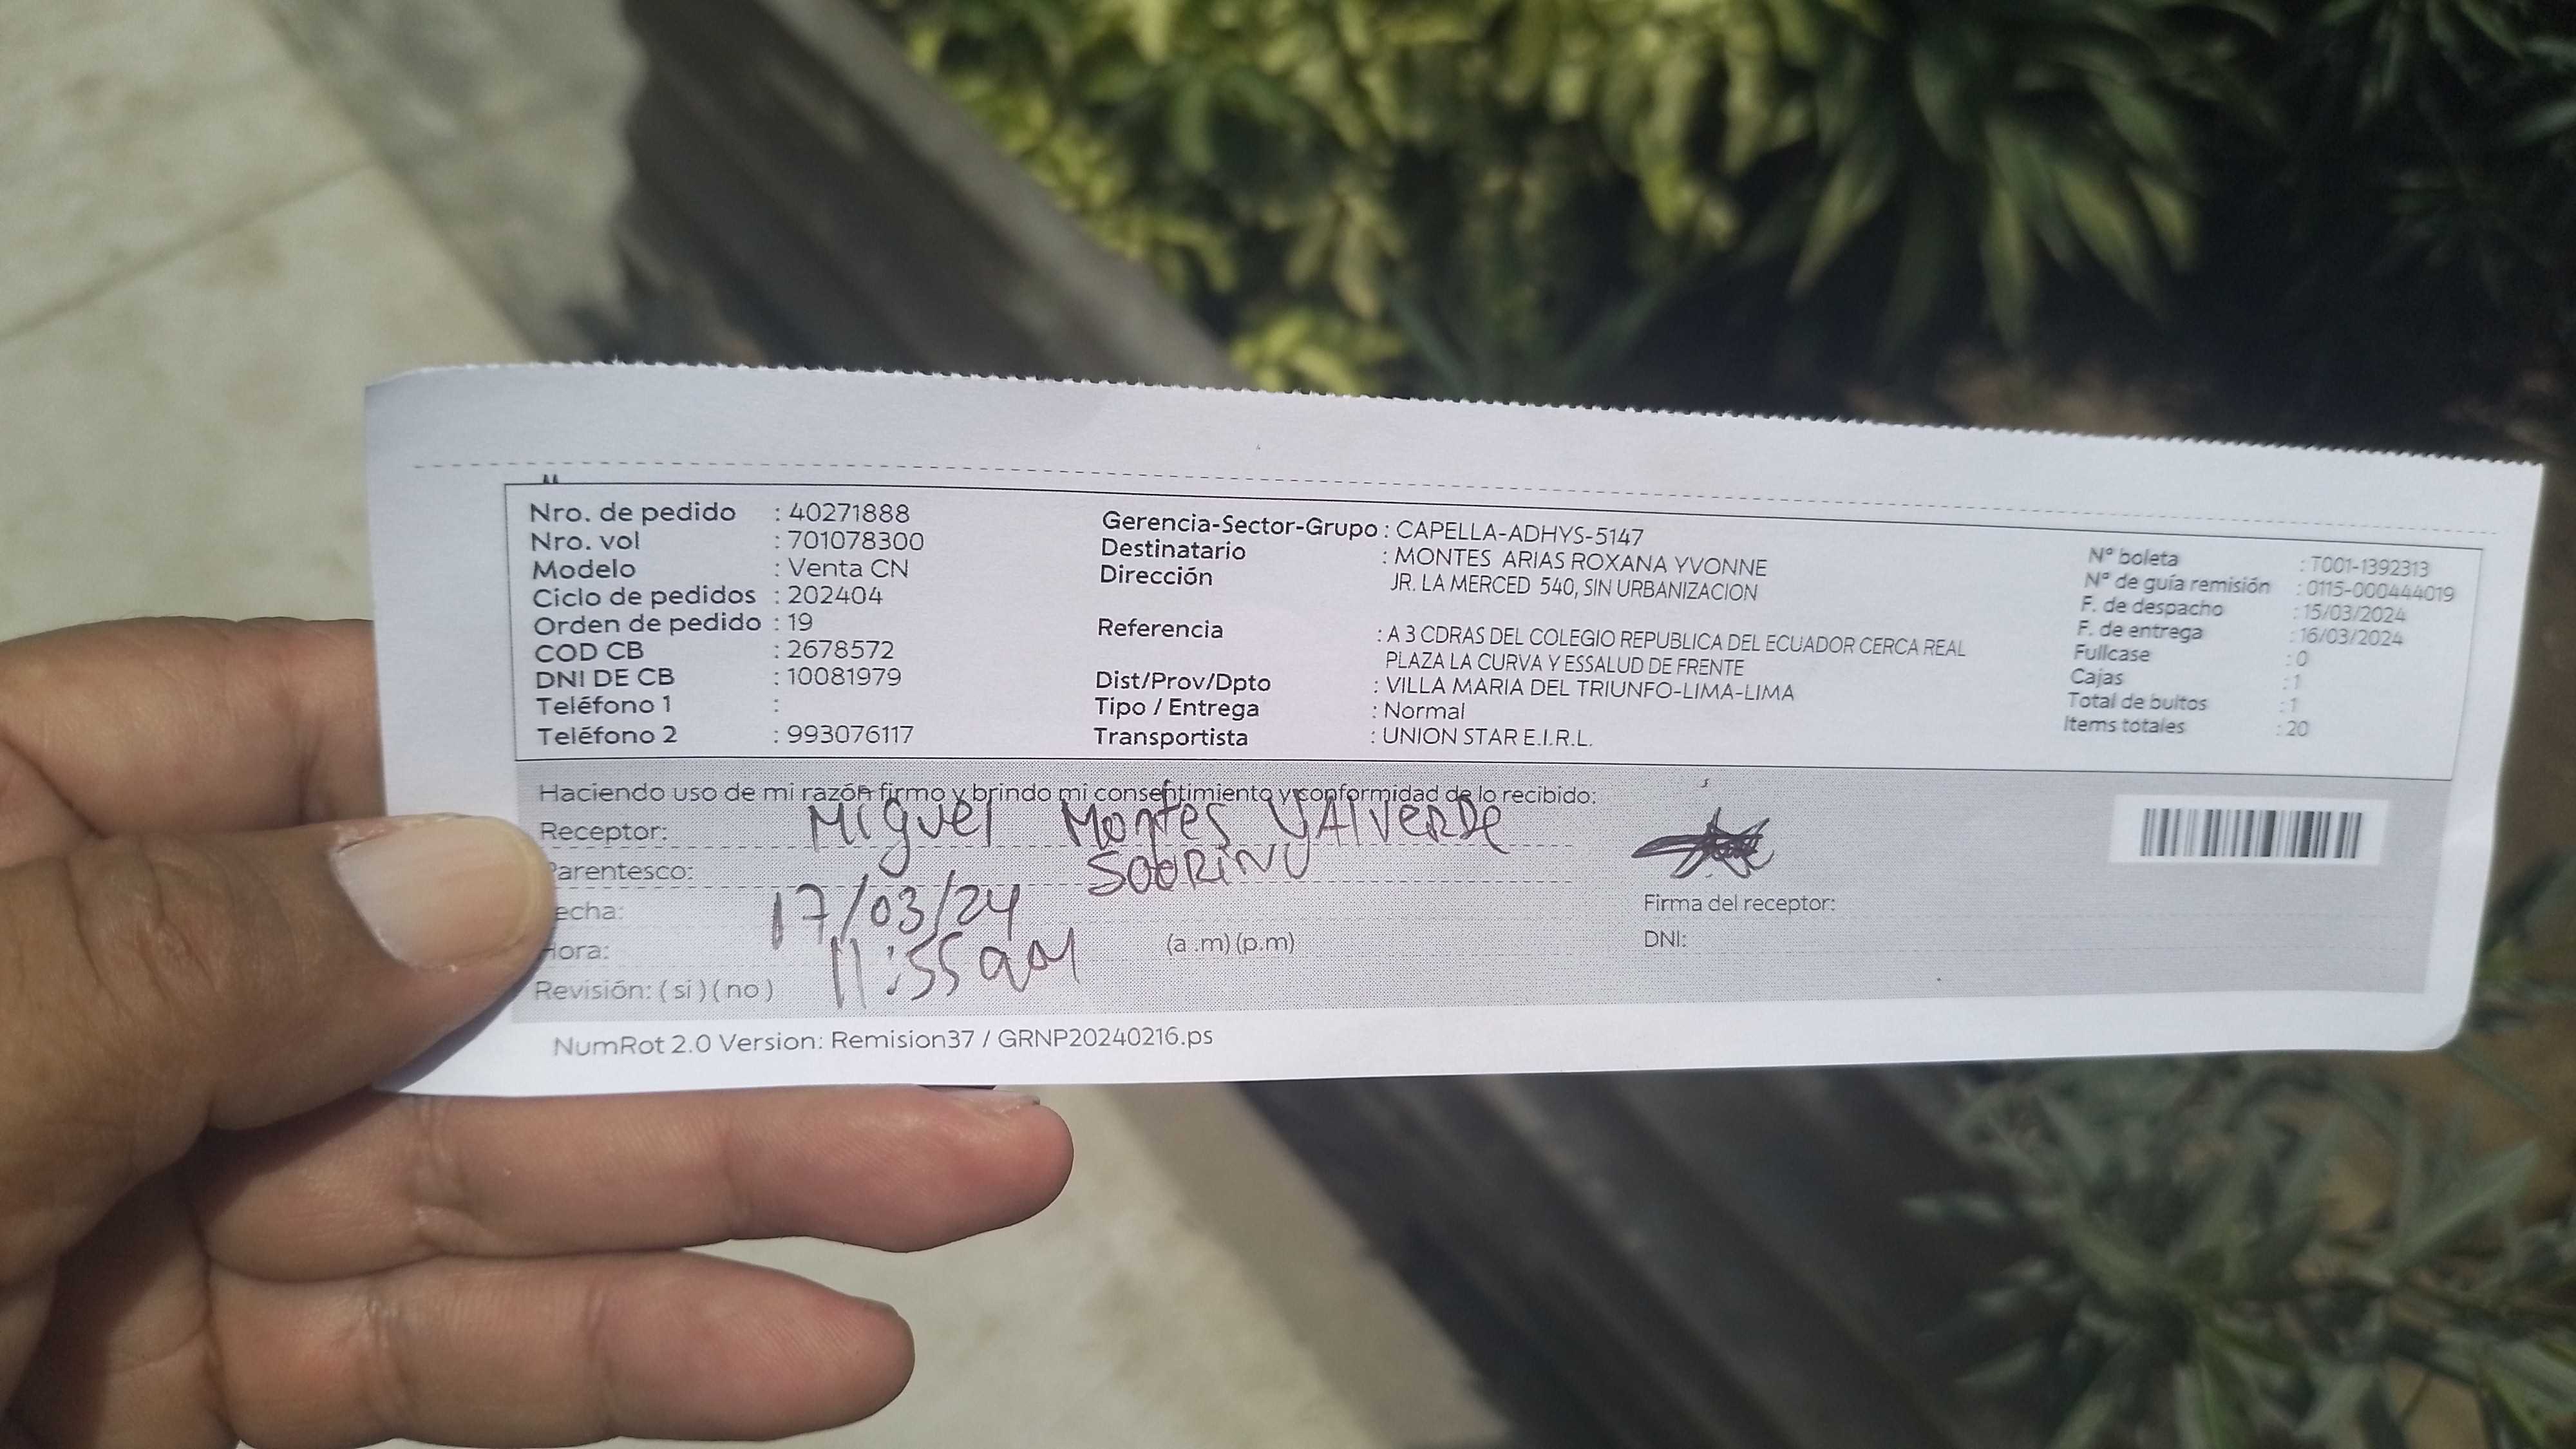 Nro. de pedido : 40271888
Nro. vol : 701078300
Modelo : Venta CN
Ciclo de pedidos : 202404
Orden de pedido : 19
COD CB : 2678572
DNI DE CB : 10081979
Teléfono 1 :
Teléfono 2 : 993076117
Gerencia-Sector-Grupo : CAPELLA-ADHYS-5147
Destinatario : MONTES ARIAS ROXANA YVONNE
Dirección JR. LA MERCED 540, SIN URBANIZACION
Referencia : A 3 CDRAS DEL COLEGIO REPUBLICA DEL ECUADOR CERCA REAL
PLAZA LA CURVA Y ESSALUD DE FRENTE
Dist/Prov/Dpto : VILLA MARIA DEL TRIUNFO-LIMA-LIMA
Tipo / Entrega : Normal
Transportista : UNION STAR E.I.R.L.
N° boleta : T001-1392313
N° de guía remisión : 0115-000444019
F. de despacho : 15/03/2024
F. de entrega : 16/03/2024
Fullcase : 0
Cajas : 1
Total de bultos : 1
Items totales : 20
Haciendo uso de mi razón firmo y brindo mi consentimiento y conformidad de lo recibido:
Receptor: Miguel Montes VAlVERDE
Parentesco: SOBRINO
echa: 17/03/24
Hora: 11:55 am (a .m) (p.m)
Revisión: ( si ) ( no )
Firma del receptor:
DNI:
NumRot 2.0 Version: Remision37 / GRNP20240216.ps